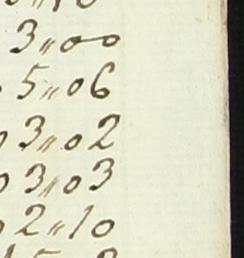 3〃00
5〃06
3〃02
3〃03
2〃10